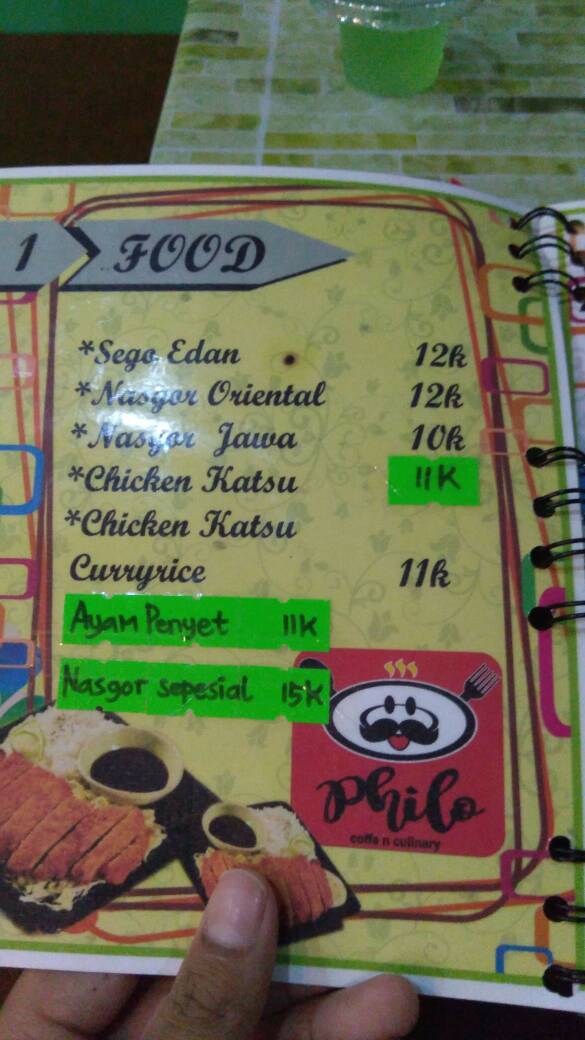 1 FOOD
*Sego Edan 12k
*Nasgor Oriental 12k
*Nasgor Jawa 10k
*Chicken Katsu 11K
*Chicken Katsu
Curryrice 11k
Ayam Penyet 11K
Nasgor sepesial 15K
Philo
coffe n culinary